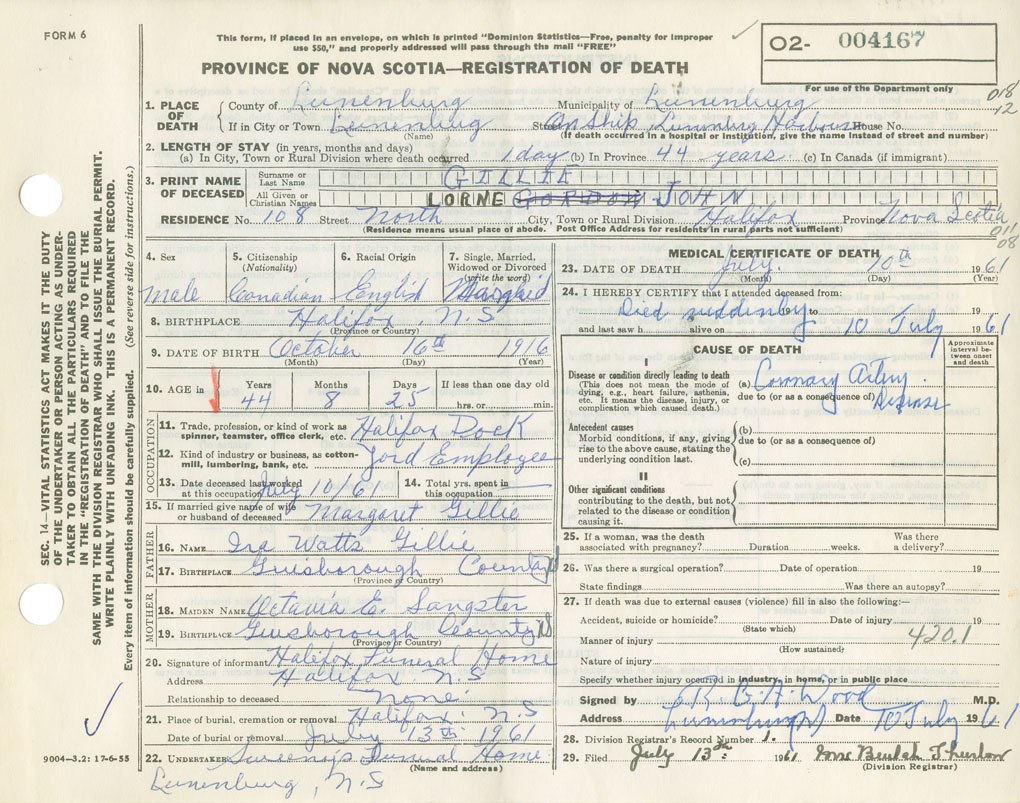 FORM 6
This form, if placed in an envelope, on which is printed "Dominion Statistics—Free, penalty for improper
use $50," and properly addressed will pass through the mail "FREE"
PROVINCE OF NOVA SCOTIA—REGISTRATION OF DEATH
O2- 004167
For use of the Department only
018
12
1. PLACE OF DEATH { County of Lunenburg Municipality of Lunenburg
If in City or Town Lunenburg Street On Ship, Lunenburg Harbour House No.
(Name) (If death occurred in a hospital or institution, give the name instead of street and number)
2. LENGTH OF STAY (in years, months and days)
(a) In City, Town or Rural Division where death occurred 1 day (b) In Province 44 years (c) In Canada (if immigrant)
3. PRINT NAME OF DECEASED { Surname or Last Name GILLIE
All Given or Christian Names LORNE GORDON JOHN
RESIDENCE No. 108 Street North City, Town or Rural Division Halifax Province Nova Scotia
(Residence means usual place of abode. Post Office Address for residents in rural parts not sufficient)
011
08
4. Sex 5. Citizenship (Nationality) 6. Racial Origin 7. Single, Married, Widowed or Divorced (write the word)
Male Canadian English Married
8. BIRTHPLACE Halifax, N.S
(Province or Country)
9. DATE OF BIRTH October 16th 1916
(Month) (Day) (Year)
10. AGE in Years Months Days If less than one day old
44 8 25 hrs. or min.
OCCUPATION
11. Trade, profession, or kind of work as spinner, teamster, office clerk, etc. Halifax Dock
12. Kind of industry or business, as cotton-mill, lumbering, bank, etc. Yard Employee
13. Date deceased last worked at this occupation July 10/61 14. Total yrs. spent in this occupation
15. If married give name of wife or husband of deceased Margaret Gillie
FATHER
16. NAME Ira Watts Gillie
17. BIRTHPLACE Guysborough County
(Province or Country)
MOTHER
18. MAIDEN NAME Octavia E. Sangster
19. BIRTHPLACE Guysborough County
(Province or Country)
20. Signature of informant Halifax Funeral Home
Address Halifax N.S
Relationship to deceased None.
21. Place of burial, cremation or removal Halifax. N.S
Date of burial or removal July 13th 1961
22. UNDERTAKER Sweeny's Funeral Home
(Name and address)
Lunenburg, N.S
MEDICAL CERTIFICATE OF DEATH
23. DATE OF DEATH July 10th 1961
(Month) (Day) (Year)
24. I HEREBY CERTIFY that I attended deceased from:
Died suddenly to 19
and last saw h alive on 10 July 1961
CAUSE OF DEATH
Approximate interval between onset and death
I
Disease or condition directly leading to death
(This does not mean the mode of dying, e.g., heart failure, asthenia, etc. It means the disease, injury, or complication which caused death.)
(a) Coronary Artery Disease
due to (or as a consequence of)
Antecedent causes
Morbid conditions, if any, giving rise to the above cause, stating the underlying condition last.
(b)
due to (or as a consequence of)
(c)
II
Other significant conditions
contributing to the death, but not related to the disease or condition causing it.
25. If a woman, was the death associated with pregnancy? Duration weeks. Was there a delivery?
26. Was there a surgical operation? Date of operation 19
State findings Was there an autopsy?
27. If death was due to external causes (violence) fill in also the following:—
Accident, suicide or homicide? Date of injury 19
(State which)
Manner of injury 420.1
(How sustained)
Nature of injury
Specify whether injury occurred in industry, in home, or in public place
Signed by G. A. Wood M.D.
Address Lunenburg Date 10 July 1961
28. Division Registrar's Record Number 1.
29. Filed July 13th 1961 Mrs Beulah Thurlow
(Division Registrar)
SEC. 14—VITAL STATISTICS ACT MAKES IT THE DUTY
OF THE UNDERTAKER OR PERSON ACTING AS UNDER-
TAKER TO OBTAIN ALL THE PARTICULARS REQUIRED
IN THE "REGISTRATION OF DEATH" AND TO FILE THE
SAME WITH THE DIVISION REGISTRAR WHO SHALL ISSUE THE BURIAL PERMIT.
WRITE PLAINLY WITH UNFADING INK. THIS IS A PERMANENT RECORD.
Every item of information should be carefully supplied. (See reverse side for instructions.)
9004-3.2: 17-6-55